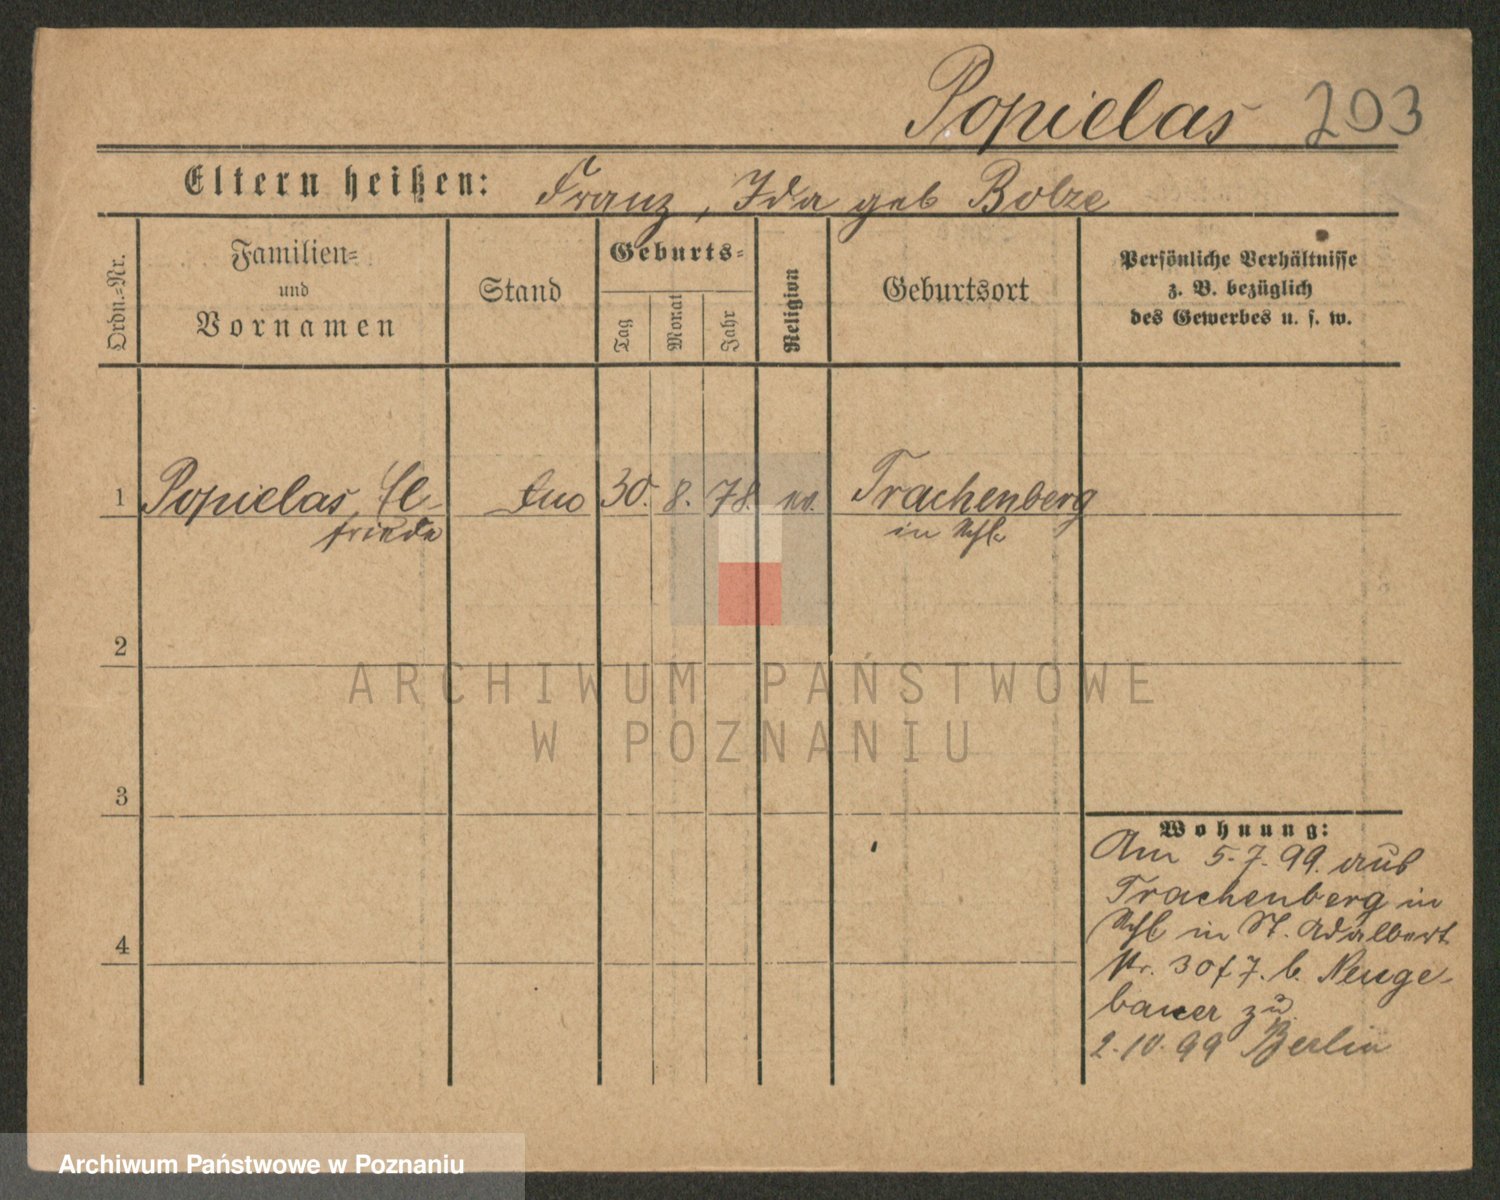 Popielas 203
Eltern heißen: Franz, Ida geb Bolze
Ordn.-Nr.
Familien-
und
Vornamen
Stand
Geburts-
Tag
Monat
Jahr
Religion
Geburtsort
Persönliche Verhältnisse
z. B. bezüglich
des Gewerbes u. s. w.
1 Popielas, El- 30. 8. 78. ev. Trachenberg
friede in Schl.
2
3
4
Wohnung:
Am 5.7.99. aus
Trachenberg in
Schl in St. Adalbert
Nr. 30/7. b. Neuge-
bauer zu.
2.10.99 Berlin
ARCHIWUM PAŃSTWOWE
W POZNANIU
Archiwum Państwowe w Poznaniu